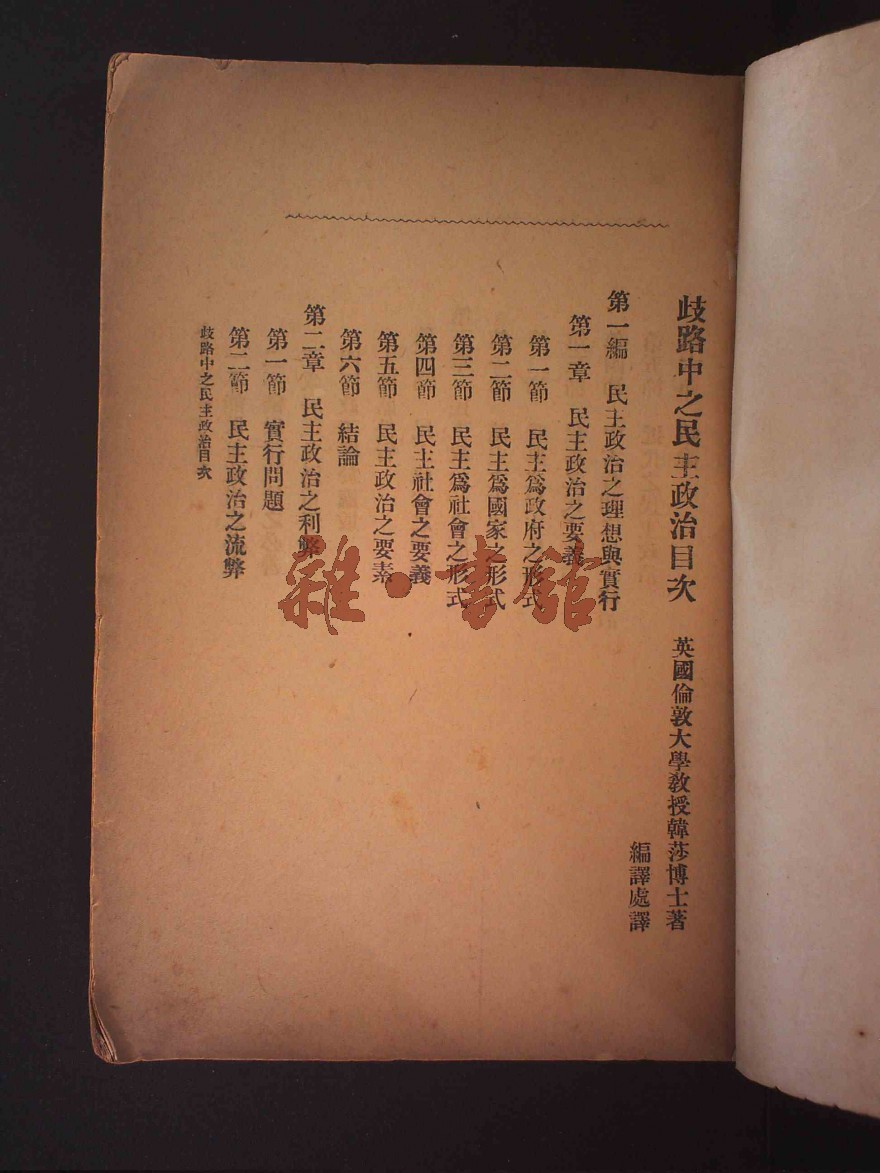 歧路中之民主政治目次
英國倫敦大學教授韓莎博士著
編譯處譯
第一編　民主政治之理想與實行
第一章　民主政治之要義
第一節　民主爲政府之形式
第二節　民主爲國家之形式
第三節　民主爲社會之形式
第四節　民主社會之要義
第五節　民主政治之要素
第六節　結論
第二章　民主政治之利弊
第一節　實行問題
第二節　民主政治之流弊
歧路中之民主政治目次
雜·書館